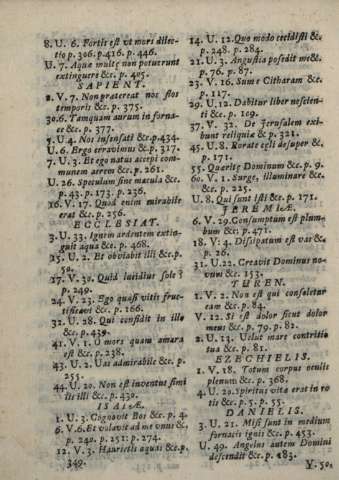 8. U. 6. Fortis est ut mors dile-
ctio p. 306. p. 416. p. 446.
U. 7. Aquæ multę non potuerunt
extinguere &c. p. 405.
SAPIENT.
2. V. 7. Non prætereat nos flos
temporis &c. p. 375.
30.6. Tamquam aurum in forna-
ce &c. p. 377.
7. U. 4. Nos insensati &c. p. 434.
U. 6. Ergo erravimus &c. p. 317.
7. U. 3. Et ego natus accepi com-
munem aerem &c. p. 261.
U. 26. Speculum sine macula &c.
p. 43. p. 173. p. 236.
16. V. 17. Quod enim mirabile
erat &c. p. 256.
ECCLESIAT.
3. U. 33. Ignem ardentem extin-
guit aqua &c. p. 468.
15. U. 2. Et obviabit illi &c. p.
50.
17. V. 30. Quid lucidius sole?
p. 249.
24. V. 23. Ego quasi vitis fruc-
tificavi &c. p. 166.
32. U. 28. Qui confidit in illo
&c. p. 439.
41. V. 1. O mors quam amara
est &c. p. 238.
43. U. 2. Vas admirabile &c. p.
255.
44. U. 20. Non est inventus simi
lis illi &c. p. 430.
ISAIÆ.
1. U. 3. Cognovit Bos &c. p. 4.
6. V. 6. Et volavit ad me unus &c.
p. 240. p. 251: p. 274.
12. V. 3. Haurietis aquas &c. p.
349.
14. U. 12. Quo modo cecidisti &c
p. 248. p. 284.
21. U. 3. Angustia posedit me &c.
p. 76. p. 87.
23. V. 16. Sume Citharam &c.
p. 117.
29. U. 12. Dabitur liber nescien-
ti &c. p. 109.
37. V. 32. De Jerusalem exi-
bunt reliquiæ & p. 321.
45. U. 8. Rorate cęli desuper &c.
p. 171.
55. Quęrite Dominum &c. p. 9.
60. V. 1. Surge, illuminare &c.
&c. p. 225.
U. 8. Qui sunt isti &c. p. 171.
JEREMIÆ.
6. V. 29. Consumptum est plum-
bum &c. p. 471.
18. V: 4. Dissipatum est vas &c.
p. 26.
31. U. 22. Creavit Dominus no-
vum &c. 153.
TUREN.
1. V. 2. Non est qui consoletur
eam &c. p. 84.
V. 12. Si est dolor sicut dolor
meus &c. p. 79. p. 82.
2. U. 13. Velut mare contritio
tua &c. p. 81.
EZECHIELIS.
1. V. 18. Totum corpus oculis
plenum &c. p. 368.
4. U. 20. Spiritus vitæ erat in ro
tis &c. p. 5. p. 55.
DANIELIS.
3. U. 21. Missi sunt in medium
fornacis ignis &c. p. 453.
U. 49. Angelus autem Domini
descendit &c. p. 183.
V. 50.